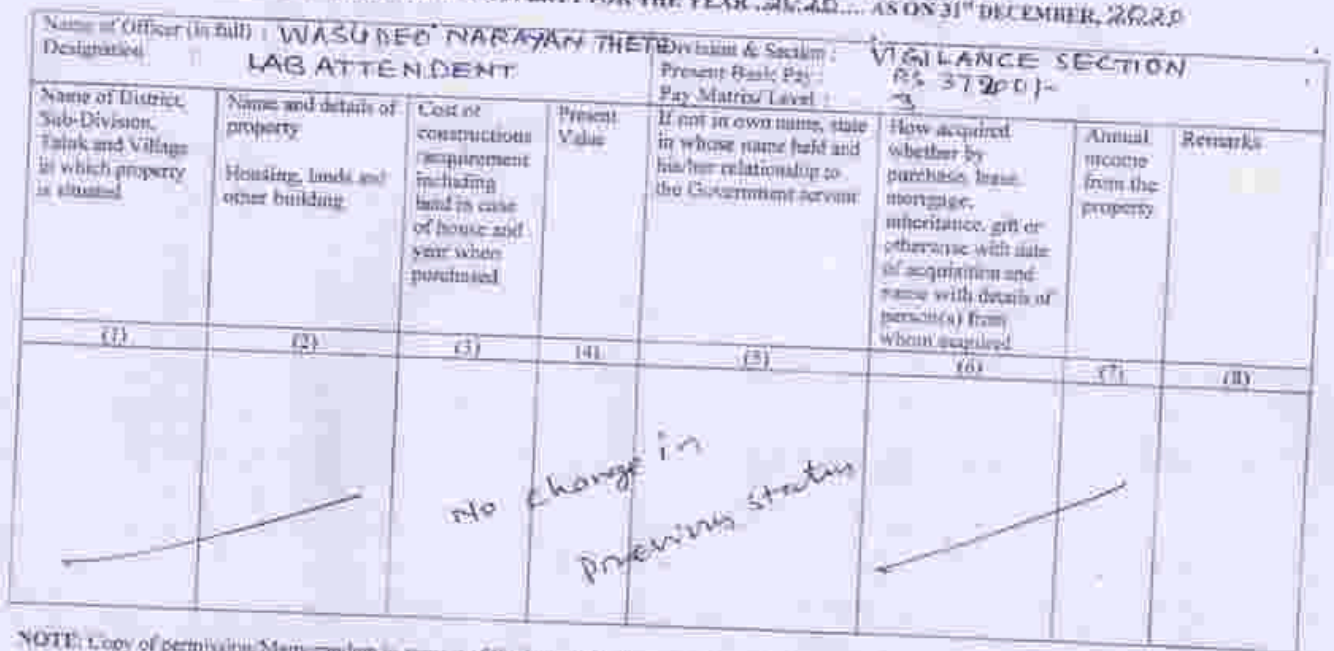 FOR THE YEAR 2020 AS ON 31st DECEMBER, 2020
Name of Officer (in full) : WASUDEO NARAYAN Division & Section : VIGILANCE SECTION
Designation LAB ATTENDENT Present Basic Pay :
Pay Matrix/ Level :
Name of District,
Sub-Division,
Taluk and Village
in which property
is situated
Name and details of
property
Housing, lands and
other building
Cost of
constructions
including
land in case
of house and
year when
purchased
Present
Value
If not in own name, state
in whose name held and
his/her relationship to
the Government servant
How acquired
whether by
purchase, lease,
mortgage,
inheritance, gift or
otherwise with date
of acquisition and
name with details of
person(s) from
whom acquired
Annual
income
from the
property
Remarks
(1) (2) (3) (4) (5) (6) (7) (8)
No change in
previous status
NOTE: Copy of permission